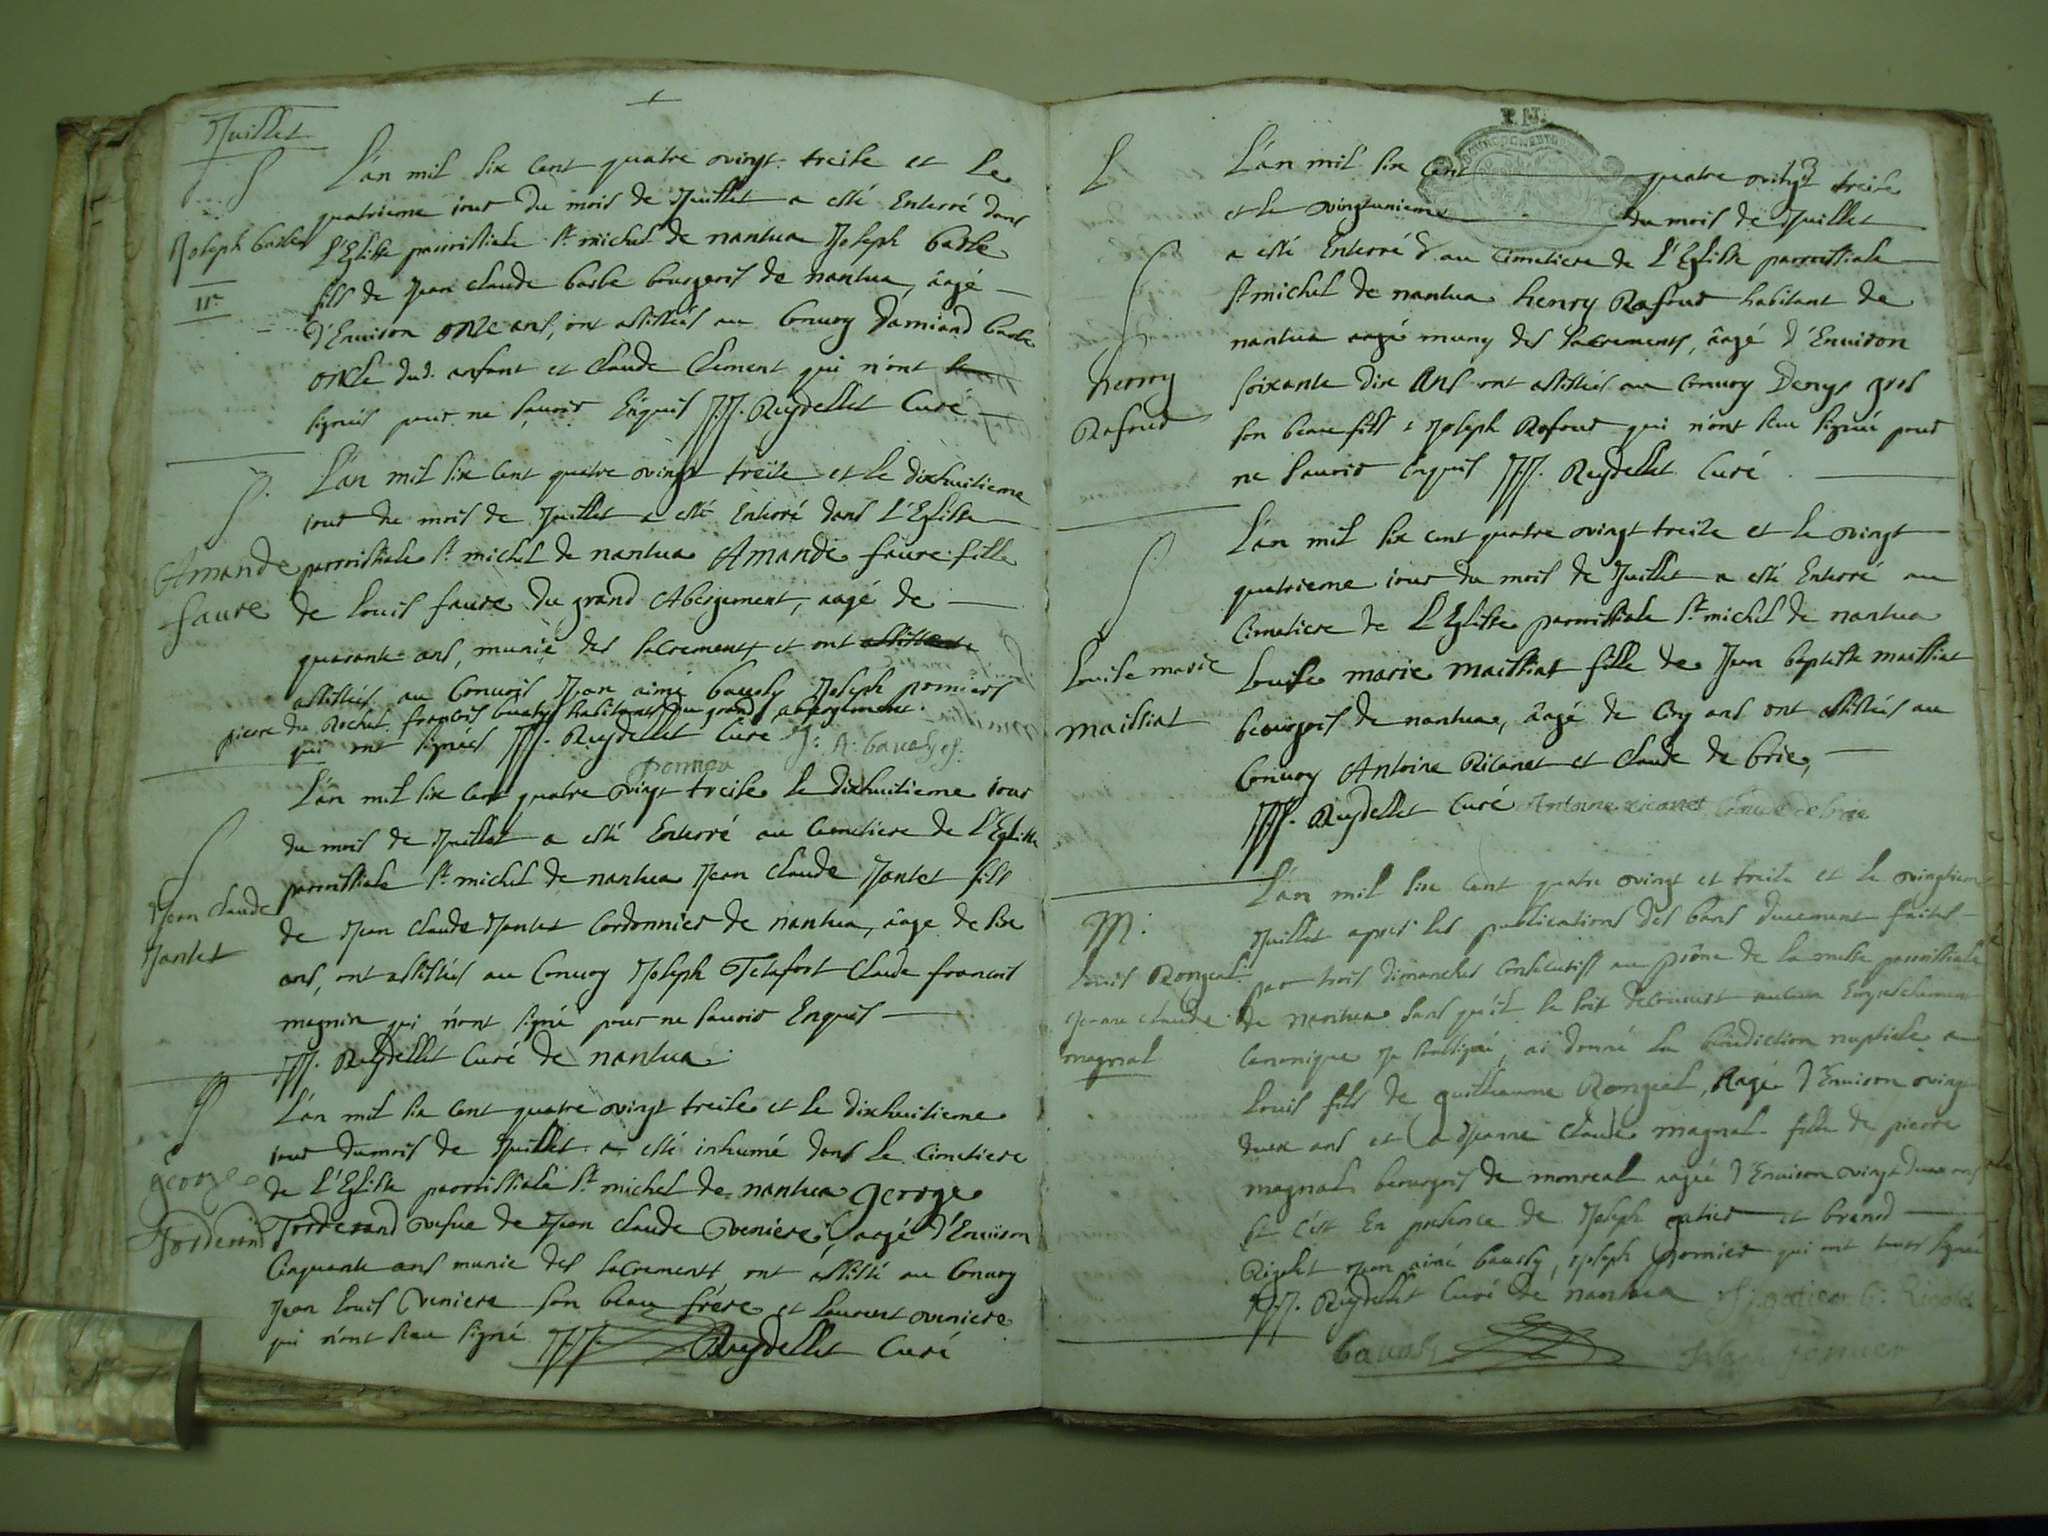 Juillet
L'an mil six cent quatre vingt treise et le
quatrieme jour du mois de Juillet a esté Enterré dans
Joseph barbe
L'Eglise parroissiale St michel de nantua Joseph barbe
fils de Jean claude barbe bourgeois de nantua, âagé
11e
d'Environ onze ans, ont assistés au Convoy Damiand barbe
oncle dud. anfant et Claude Clement qui n'ont
signés pour ne sçavoir Enquis JJ. Reydellet Curé
L'an mil six cent quatre vingt treise et le dixhuitieme
jour du mois de Juillet a esté Enterré dans L'Eglise
Amande
parroissiale St michel de nantua Amande faure fille
faure
de Louis faure du grand Abergement, aagé de
quarante ans, munie des sacrements et ont
assistés au Convois Jean aimé baudy Joseph pomiers
pierre du Rochet francois habitants du grand abergement
qui ont signés JJ. Reydellet Curé J. A.
pomier
L'an mil six cent quatre vingt treise le dixhuitieme jour
du mois de Juillet a esté Enterré au Cimetiere de L'Eglise
Jean Claude
parroissiale St michel de nantua Jean Claude Jantet fils
Jantet
de Jean Claude Jantet Cordonnier de nantua, âage de six
ans, ont assistés au Convoy Joseph Tetafort Claude francois
magnin qui n'ont signé pour ne sçavoir Enquis
JJ. Reydellet Curé de nantua.
L'an mil six cent quatre vingt treise et le dixhuitieme
jour du mois de Juillet a esté inhumé dans le Cimetiere
george
de L'Eglise parroissiale St michel de nantua george
Jorderand
Jorderand vefue de Jean claude Veniere, aagé d'Environ
Cinquante ans munie des sacrements ont assisté au Convoy
Jean Louis Veniere son beau frere et Laurent veniere
qui n'ont sceu signé JJ. Reydellet Curé
L'an mil six cent quatre vingt treise
et le vingtunieme du mois de Juillet
a esté Enterré au Cimetiere de L'Eglise parroissiale
St michel de nantua henry Rafour habitant de
henry
nantua aagé muny des sacrements, âagé d'Environ
Rafour
soixante dix Ans ont assistés au Convoy Denys gros
son beau fils & Joseph Rafour qui n'ont sceu signée pour
ne sçavoir enquis JJ. Reydellet Curé
L'an mil six cent quatre vingt treize et le vingt
quatrieme jour du mois de Juillet a esté Enterré au
Cimetiere de L'Eglise parroissiale St michel de nantua
Louise marie
Louise marie maissiat fille de Jean baptiste maissiat
maissiat
bourgois de nantua, âagé de Cinq ans ont assistés au
Convoy Antoine Ricanet et Claude de brie,
JJ. Reydellet Curé Antoine ricanet Claude de brie
L'an mil six cent quatre vingt et treise et le vingtieme
M:
Juillet apres les publications des bans duement faites
Louis Rongeat
par trois dimanches consecutifs au prône de la messe parroissiale
Jeanne Claude
de nantua sans qu'il se soit decouvert aucun Empeschement
magnal
Canonique Je soussigné, ai donné la benediction nuptiale a
Louis fils de guillaume Rongeat, Aagé d'Environ vingt
deux ans et a Jeanne Claude magnal fille de pierre
magnal bourgois de monreal aagée d'Environ vingt deux ans
C'est En presence de Joseph patier et brand
Rigolet Jean aimé baudy, Joseph pomier qui ont tous signés
JJ. Reydellet Curé de nantua